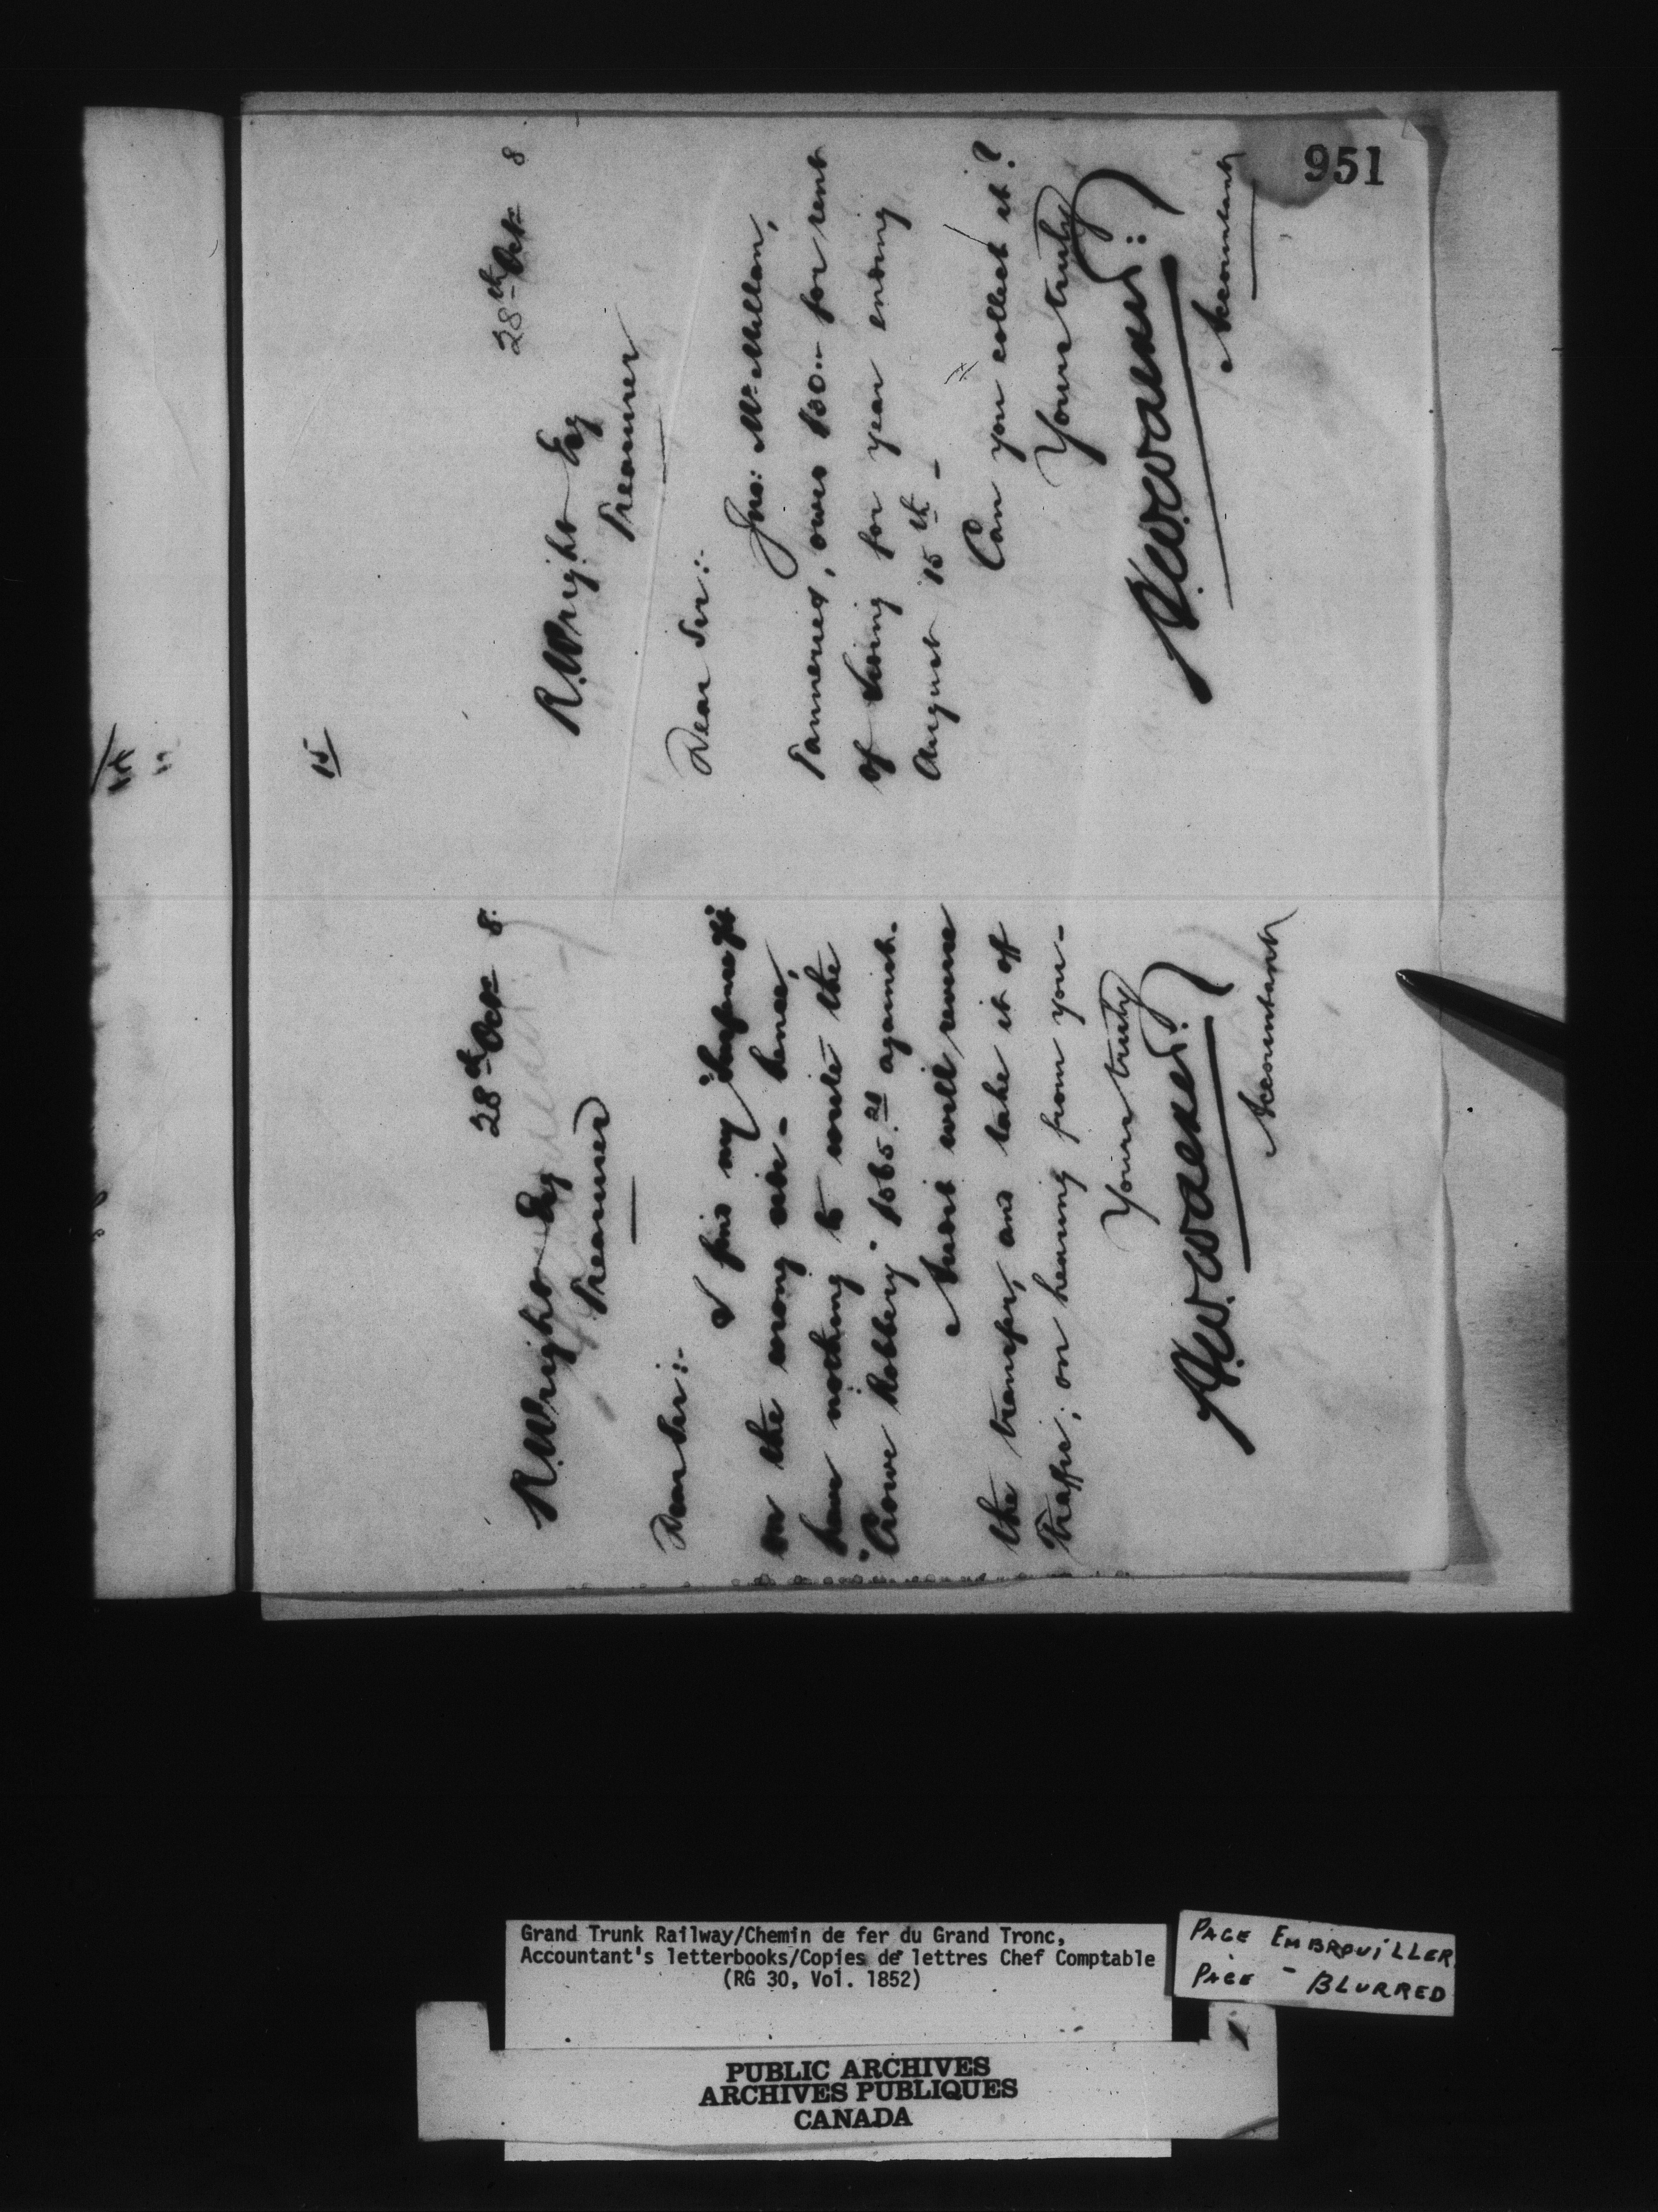 951
15
28th Oct 8
R. Wright Esq
Treasurer
Dear Sir:-
I find my "Suspense %"
on the wrong side - hence,
have nothing to write the
"Crowe Robbery" against.
Accept will reverse
the transfer, and take it off
Traffic; on hearing from you -
Yours truly
Accountant
28th Oct 8
R. Wright Esq
Treasurer
Dear Sir:-
Jno: McMillan,
Tanneries, owes $30.- for rent
of for year ending
August 15th -
Can you collect it?
Yours truly
Accountant
Grand Trunk Railway/Chemin de fer du Grand Tronc,
Accountant's letterbooks/Copies de lettres Chef Comptable
(RG 30, Vol. 1852)
PAGE EMBROUILLER
PAGE - BLURRED
PUBLIC ARCHIVES
ARCHIVES PUBLIQUES
CANADA